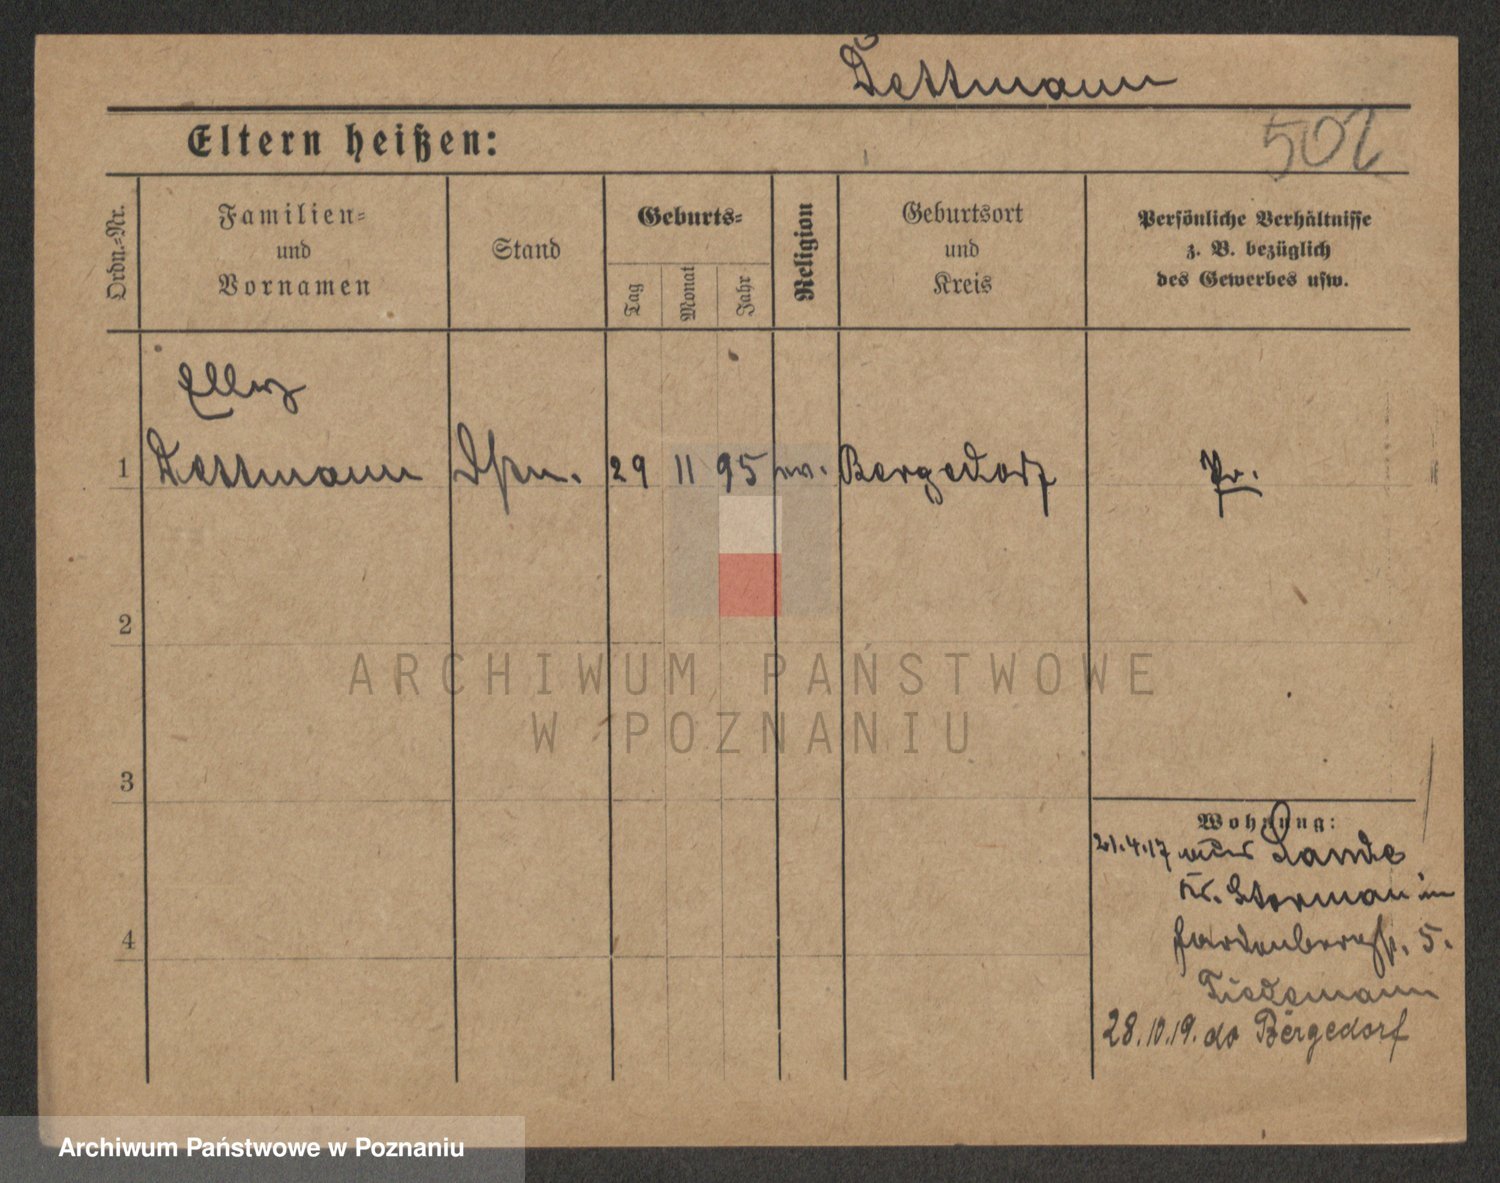 Dettmann
Eltern heißen:
502
Ordn.-Nr.
Familien-
und
Vornamen
Stand
Geburts-
Tag
Monat
Jahr
Religion
Geburtsort
und
Kreis
Persönliche Verhältnisse
z. B. bezüglich
des Gewerbes usw.
Elly
1 Dettmann 29 11 95 ev. Bergedorf Pr.
2
ARCHIWUM PAŃSTWOWE
W POZNANIU
3
Wohnung:
21.4.17 Lande
Kr. Storman in
5.
Tiedemann
4
28.10.19. do Bergedorf
Archiwum Państwowe w Poznaniu